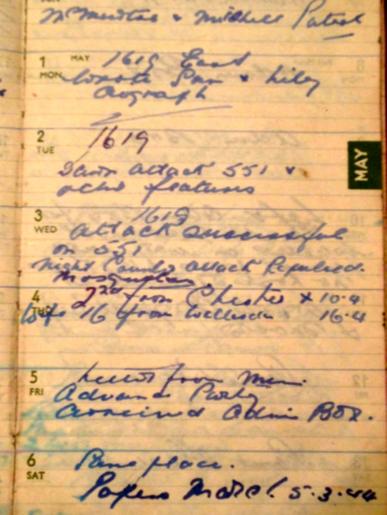 McMurtrie & Mitchell Patrol
1 MAY 1619 East
MON Wrote Pam & Lily
Aograph
2 1619
TUE
Dawn attack 551 &
other features
3 1619
WED Attack successful
on 551
Night Counter attack Repulsed.
4 22nd from Chester * 10.4
THUR 16 from 16.4
5 Letter from Mum.
FRI Advance Party
Admin Box.
6 Same place.
SAT Papers March 5.3.44
MAY